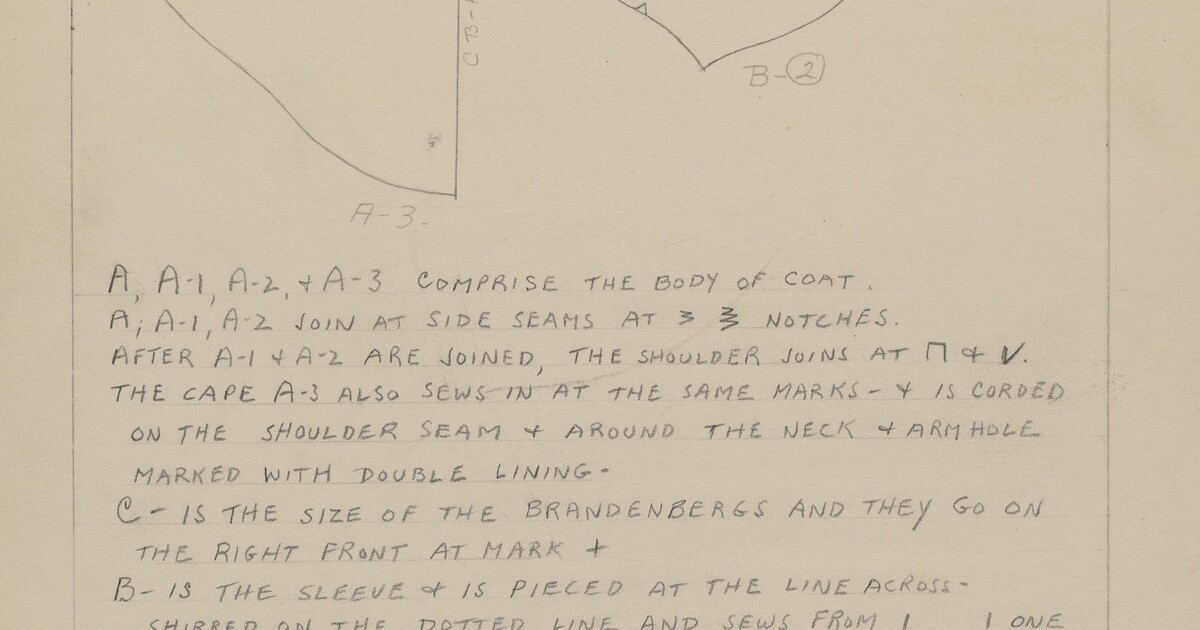 C B-
B-2
A-3.
A, A-1, A-2, & A-3 COMPRISE THE BODY OF COAT.
A, A-1, A-2 JOIN AT SIDE SEAMS AT NOTCHES.
AFTER A-1 & A-2 ARE JOINED, THE SHOULDER JOINS AT Π & V.
THE CAPE A-3 ALSO SEWS IN AT THE SAME MARKS - & IS CORDED
ON THE SHOULDER SEAM & AROUND THE NECK & ARMHOLE
MARKED WITH DOUBLE LINING -
C - IS THE SIZE OF THE BRANDENBERGS AND THEY GO ON
THE RIGHT FRONT AT MARK +
B- IS THE SLEEVE & IS PIECED AT THE LINE ACROSS -
SHIRRED ON THE DOTTED LINE AND SEWS FROM 1 1 ONE